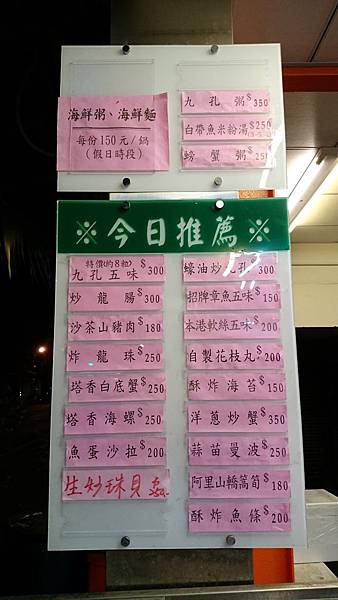 海鮮粥、海鮮麵
每份150元/鍋
(假日時段)
九孔粥$350
白帶魚米粉湯$250
螃蟹粥$250
※今日推薦※
特價(約8粒)
九孔五味$300
炒龍腸$300
沙茶山豬肉$180
炸龍珠$250
塔香白底蟹$250
塔香海螺$250
魚蛋沙拉$200
生炒珠貝
蠔油炒九孔$300
招牌章魚五味$150
本港軟絲五味$200
自製花枝丸$200
酥炸海苔$150
洋蔥炒蟹$350
蒜苗曼波$250
阿里山轎篙筍$180
酥炸魚條$200